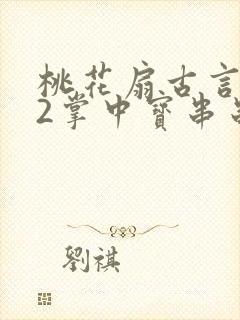 桃花扇古言
2掌中寶串
劉祺